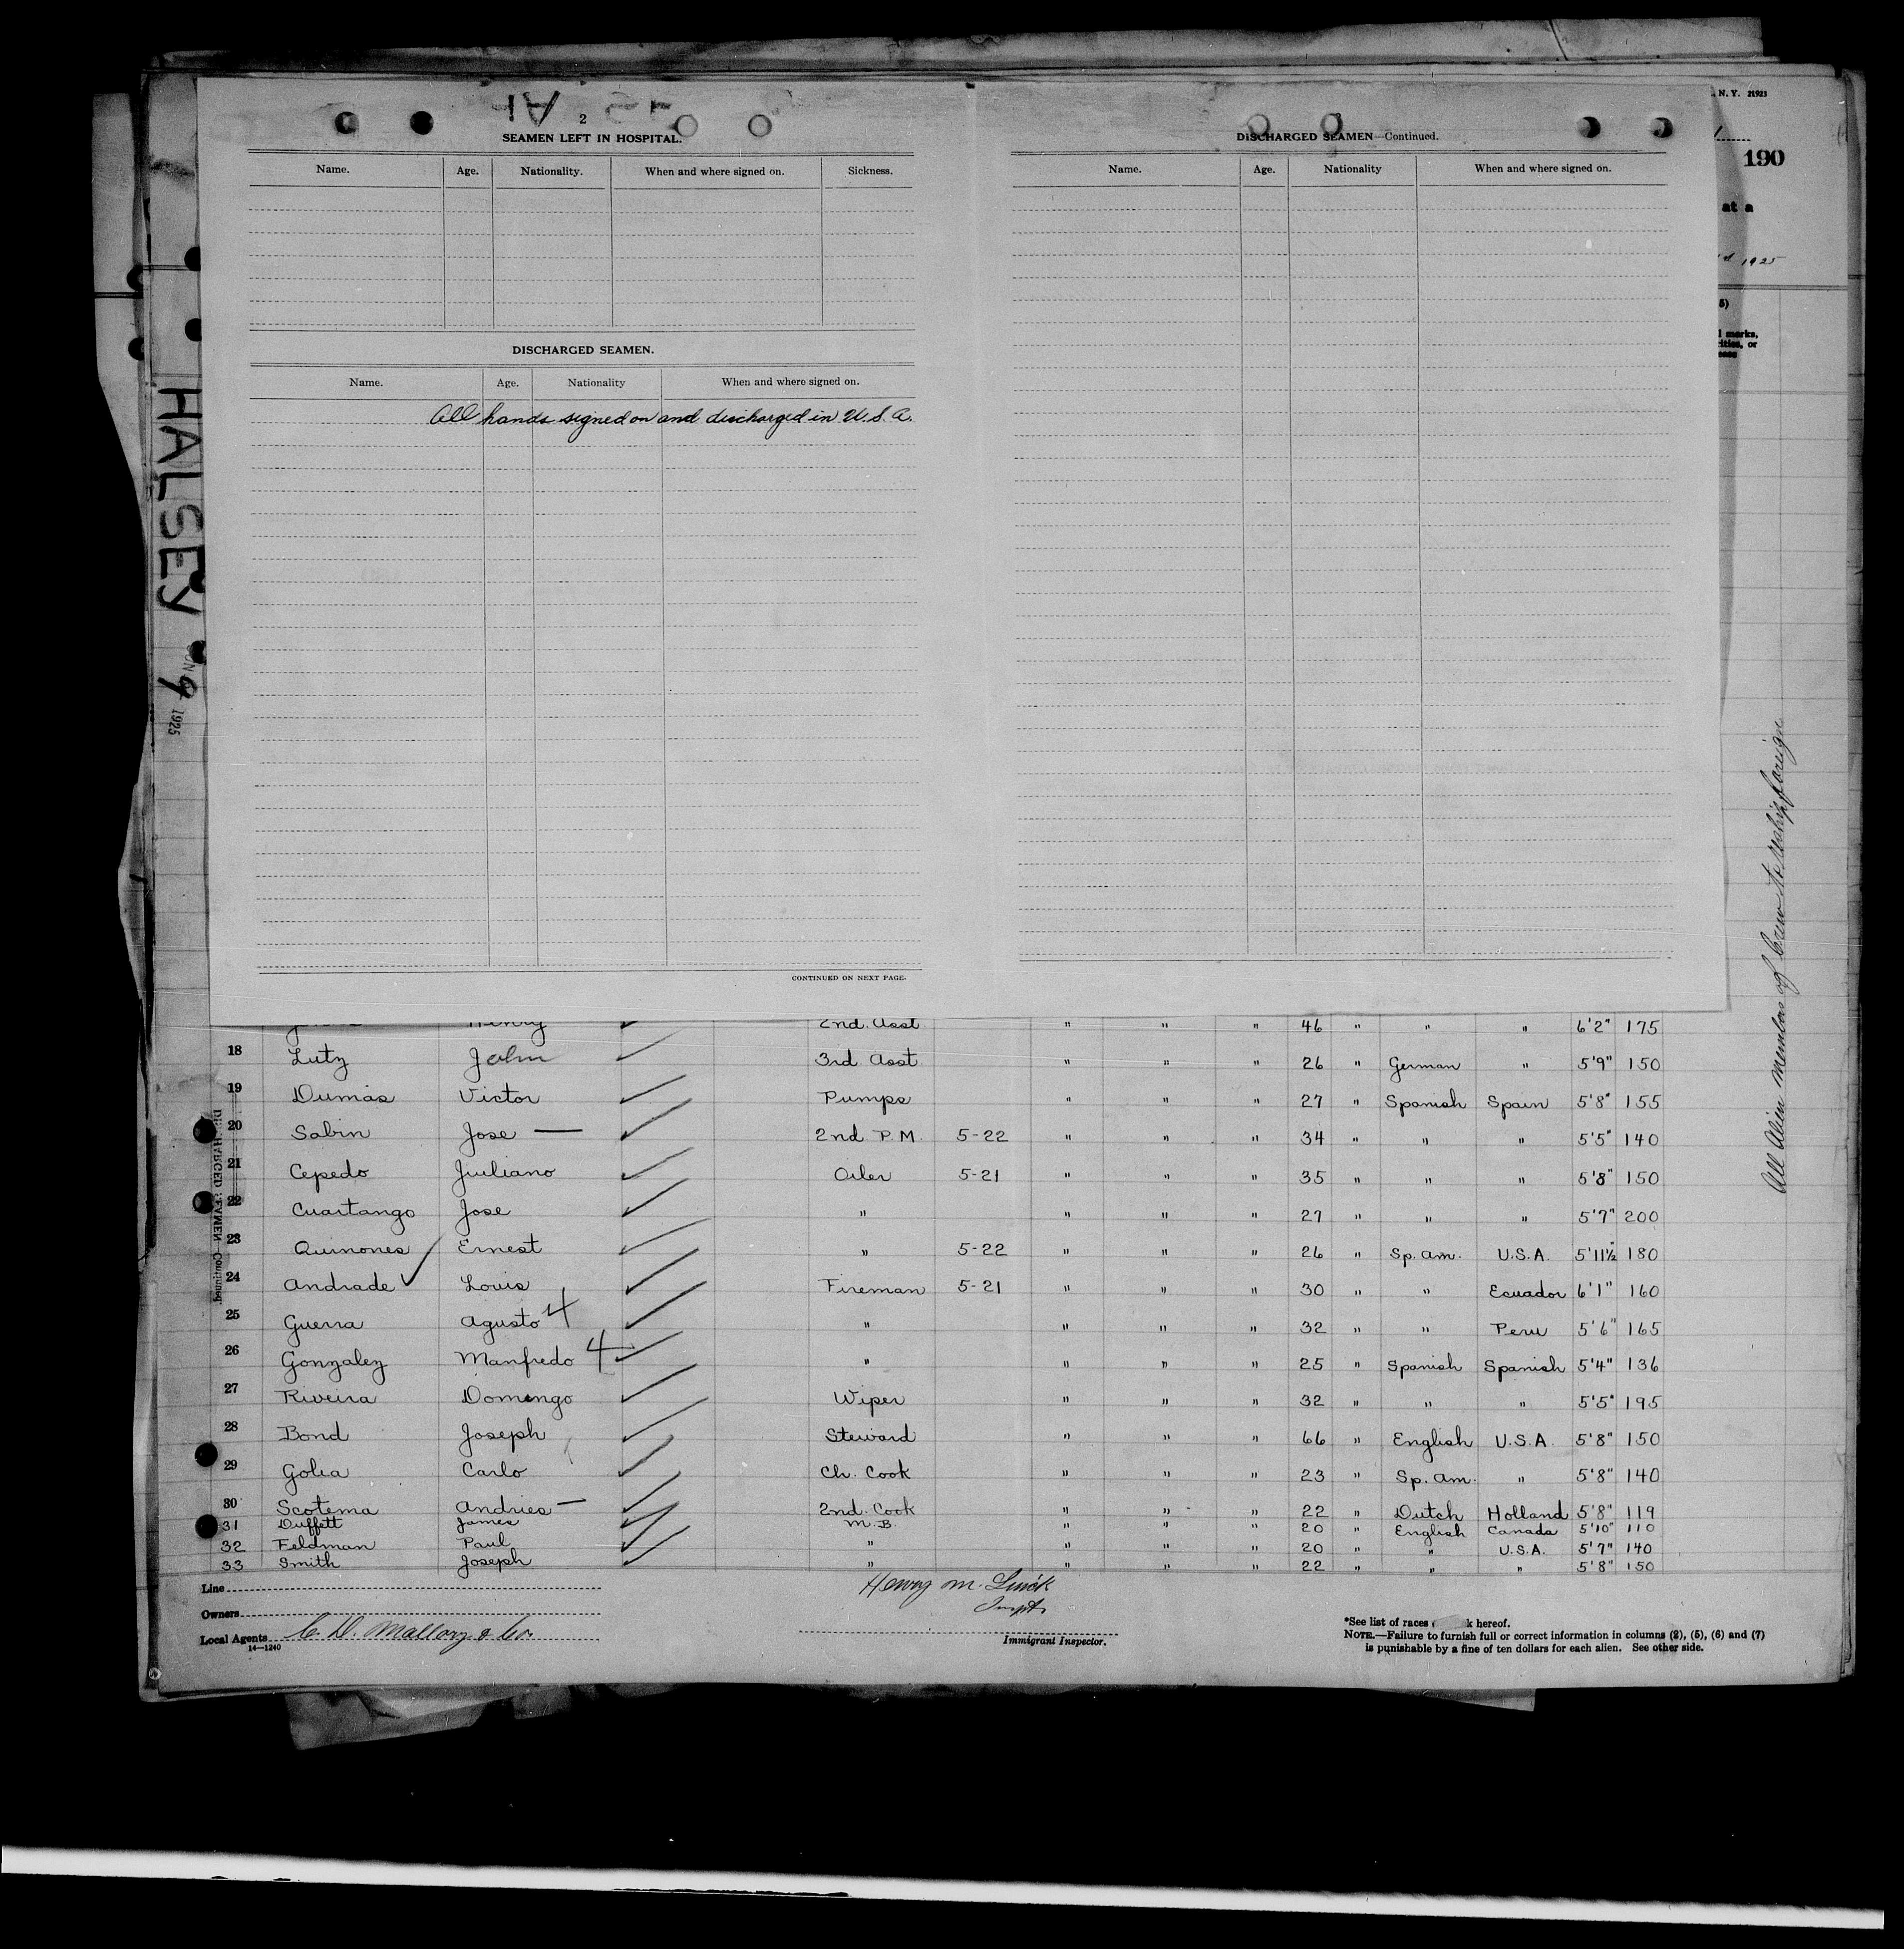 N. Y. 21923
190
at a
1925
5)
l marks,
rities, or
ease
2
SEAMEN LEFT IN HOSPITAL.
Name. Age. Nationality. When and where signed on. Sickness.
DISCHARGED SEAMEN.
Name. Age. Nationality When and where signed on.
All hands signed on and discharged in U.S.A.
CONTINUED ON NEXT PAGE.
DISCHARGED SEAMEN—Continued.
Name. Age. Nationality When and where signed on.
HALSEY
JUN 9 1925
DISCHARGED SEAMEN—Continued.
All Alien Members of Crew to reship foreign
Henry 2nd. Asst " " " 46 " " " 6'2" 175
18 Lutz John 3rd Asst " " " 26 " German " 5'9" 150
19 Dumas Victor Pumps " " " 27 " Spanish Spain 5'8" 155
20 Sabin Jose — 2nd P.M. 5-22 " " " 34 " " " 5'5" 140
21 Cepedo Juiliano Oiler 5-21 " " " 35 " " " 5'8" 150
22 Cuartango Jose " " " " 27 " " " 5'7" 200
23 Quinones Ernest " 5-22 " " " 26 " Sp. Am. U.S.A. 5'11½" 180
24 Andrade Louis Fireman 5-21 " " " 30 " " Ecuador 6'1" 160
25 Guerra Agusto 4 " " " " 32 " " Peru 5'6" 165
26 Gonzalez Manfredo 4 " " " " 25 " Spanish Spanish 5'4" 136
27 Riveira Domingo Wiper " " " 32 " " " 5'5" 195
28 Bond Joseph Steward " " " 66 " English U.S.A. 5'8" 150
29 Golia Carlo Ch. Cook " " " 23 " Sp. Am. " 5'8" 140
30 Scotema Andries — 2nd. Cook " " " 22 " Dutch Holland 5'8" 119
31 Duffett James M.B. " " " 20 " English Canada 5'10" 110
32 Feldman Paul " " " " 20 " " U.S.A. 5'7" 140
33 Smith Joseph " " " " 22 " " " 5'8" 150
Line
Owners
Local Agents C. D. Mallory & Co.
14—1240
Henry M.
Inspt.
Immigrant Inspector.
*See list of races k hereof.
NOTE.—Failure to furnish full or correct information in columns (2), (5), (6) and (7)
is punishable by a fine of ten dollars for each alien. See other side.